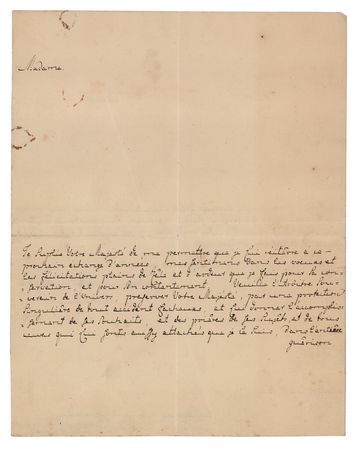 Madame.
Je suplie Votre Majesté de me permettre que je lui réitère à ce
prochain echange d'années, mes sentimens dans les voeux et
les félicitations pleines de zèle et d'ardeur que je fais pour sa con-
servation, et pour son contentement. Veuille l'Arbitre Sou-
verain de l'Univers, preserver Votre Majesté, par une protection
singulière de tout accident facheux, et lui donner l'accomplis-
sement de ses souhaits. Et des prières de ses sujets, et de tous
ceux qui lui sont aussy attachés que je le suis, dans